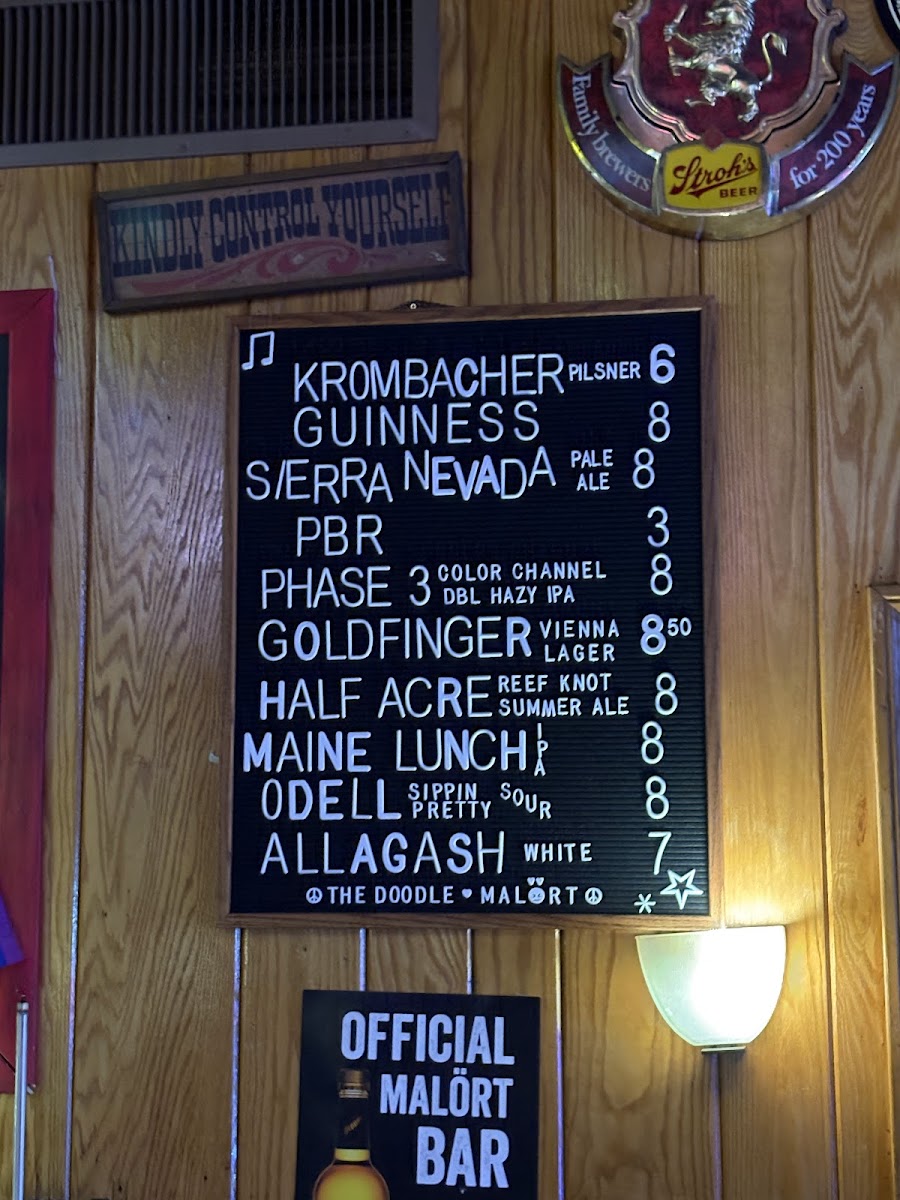 Family brewers for 200 years
Stroh's
BEER
KINDLY CONTROL YOURSELF
KROMBACHER PILSNER 6
GUINNESS 8
SIERRA NEVADA PALE ALE 8
PBR 3
PHASE 3 COLOR CHANNEL DBL HAZY IPA 8
GOLDFINGER VIENNA LAGER 8 50
HALF ACRE REEF KNOT SUMMER ALE 8
MAINE LUNCH IPA 8
ODELL SIPPIN PRETTY SOUR 8
ALLAGASH WHITE 7
☮ THE DOODLE ♥ MALÖRT ☮
OFFICIAL
MALÖRT
BAR